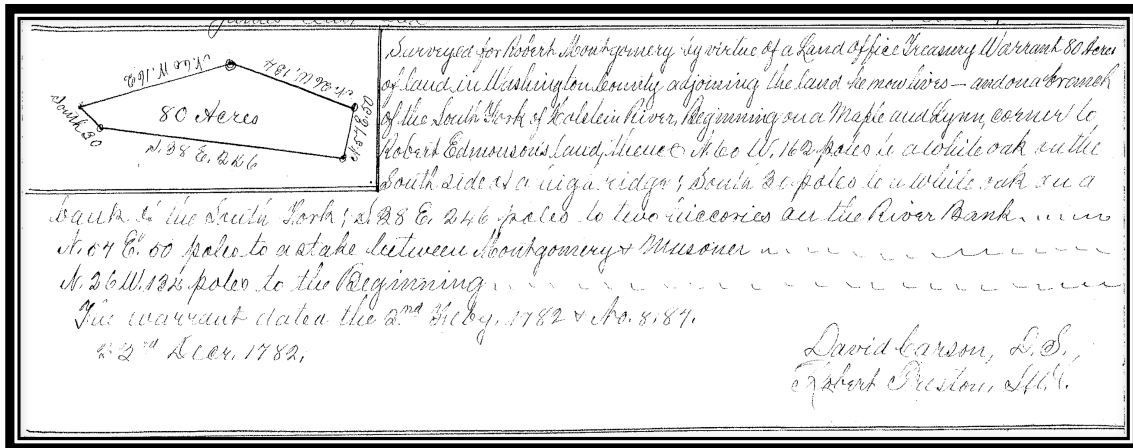 N. 60 W. 162
N. 26 W. 134
South 30
80 Acres
N. 54 E. 50
S. 38 E. 246
Surveyed for Robert Montgomery by virtue of a Land office Treasury Warrant 80 Acres
of land in Washington County adjoining the land he now lives — and on a branch
of the South Fork of Holstein River, Beginning on a Maple and Lynn, corner to
Robert Edmonson's land, thence N. 60 W. 162 poles to a white oak on the
South side of a high ridge; South 30 poles to a white oak on a
bank of the South Fork; S. 28 E. 246 poles to two hiccories on the River Bank
N. 54 E. 50 poles to a stake between Montgomery &
N. 26 W. 134 poles to the Beginning
The warrant dated the 2nd Feby. 1782 & No. 8.84.
22nd Decr. 1782.
David Carson, D. S.,
Robert Preston,